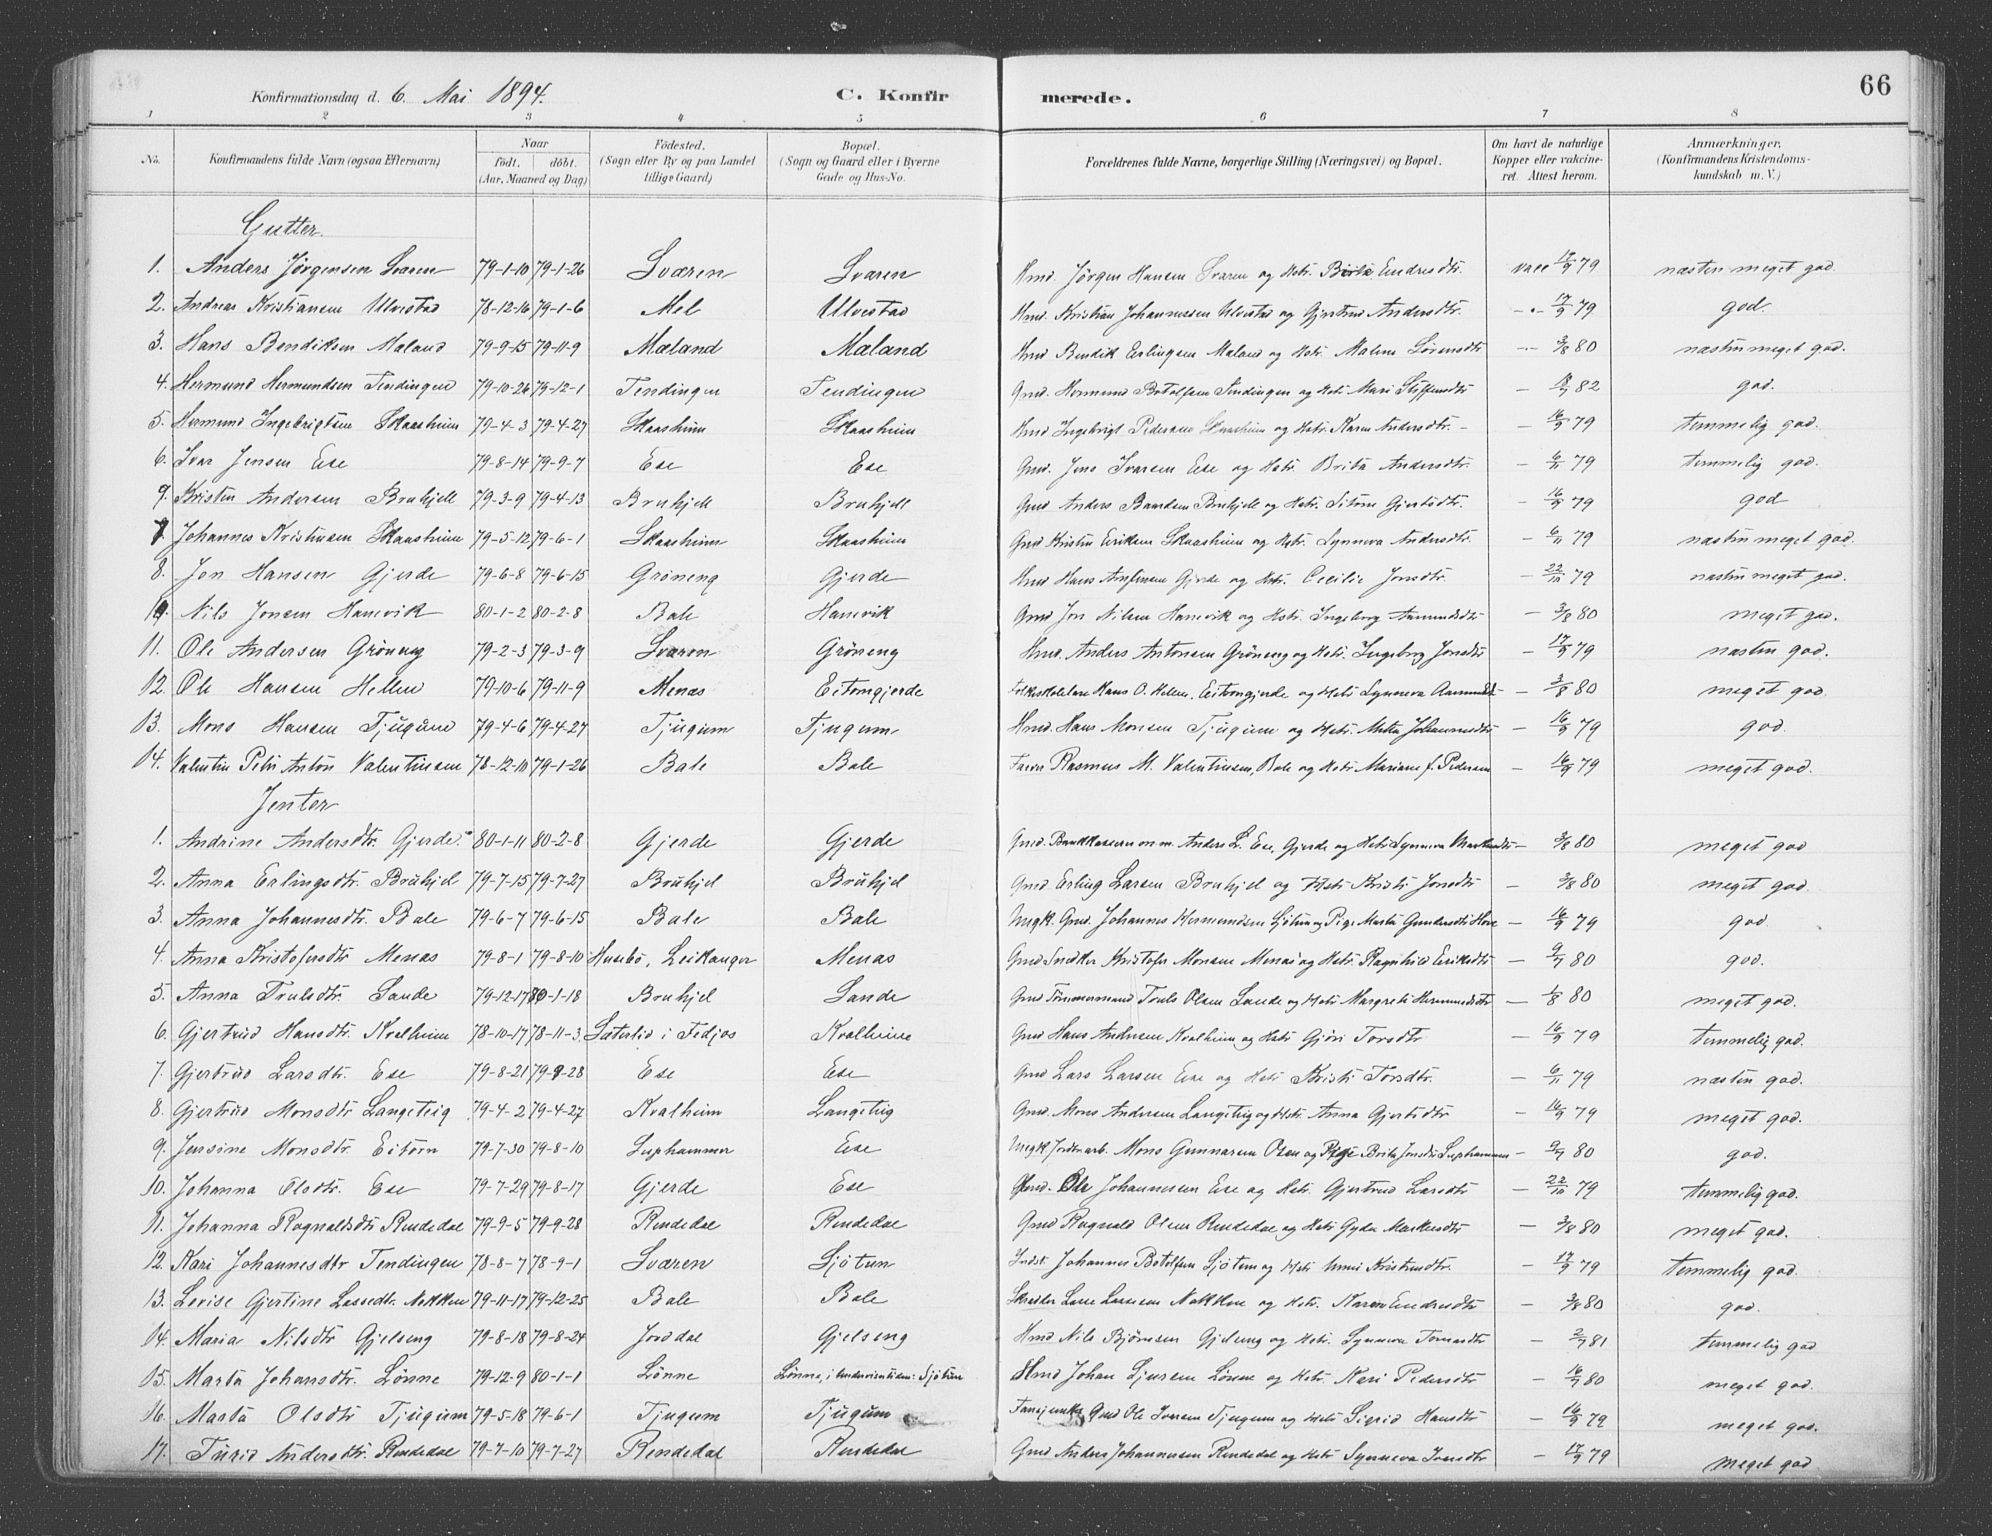 66
Konfirmationsdag d. 6. Mai 1894. C. Konfirmerede.
1 2 3 4 5 6 7 8
No. Konfirmandens fulde Navn (ogsaa Efternavn) Naar født, døbt. (Aar, Maaned og Dag) Fødested. (Sogn eller By og paa Landet tillige Gaard) Bopæl. (Sogn og Gaard eller i Byerne Gade og Hus-No. Forældrenes fulde Navne, borgerlige Stilling (Næringsvei) og Bopæl. Om havt de naturlige Kopper eller vaccineret. Attest herom. Anmærkninger. (Konfirmandens Kristendomskundskab m. V.)
Gutter.
1. Anders Jørgensen Sværen 79-1-10 79-1-26 Sværen Sværen Gmd. Jørgen Hansen Sværen og Hstr. Brita Endresdtr. vacc 17/9 79 næsten meget god.
2. Andreas Kristiansen Ulvestad 78-12-16 79-1-6 Mel Ulvestad Hmd. Kristian Johannessen Ulvestad og Gjertrud Andersdtr. - 17/9 79 god.
3. Hans Bendiksen Mæland 79-9-15 79-11-9 Mæland Mæland Hmd Bendik Erlingsen Mæland og Hstr. Malene Sørensdtr - 3/8 80 næsten meget god.
4. Hermund Hermundsen Tendingen 79-10-26 79-12-1 Tendingen Tendingen Gmd. Hermund Botolfsen Tendingen og Hstr. Mari Steffensdtr - 82 god.
5. Hermund Ingebrigtsen Skaasheim 79-4-3 79-4-27 Skaasheim Skaasheim Hmd Ingebrigt Pedersen Skaasheim og Hstr. Karen Andersdtr. - 16/9 79 temmelig god.
6. Ivar Jensen Ese 79-8-14 79-9-7 Ese Ese Gmd. Jens Ivarsen Ese og Hstr. Brita Andersdtr. - 6/11 79 temmelig god.
9. Kristen Andersen Bruhjell 79-3-9 79-4-13 Bruhjell Bruhjell Gmd Anders Baardsen Bruhjell og Hstr. Gjertsdtr. - 16/9 79 god
7. Johannes Kristensen Skaasheim 79-5-12 79-6-1 Skaasheim Skaasheim Gmd Kristen Eriksen Skaasheim og Hstr. Synneva Andersdtr. - 6/11 79 næsten meget god.
8. Jon Hansen Gjerde 79-6-8 79-6-15 Grøneng Gjerde Hmd Hans Gjerde og Hstr. Cecilie Jonsdtr. - 22/10 79 næsten meget god.
10. Nils Jonsen Hanevik 80-1-2 80-2-8 Bale Hanevik Gmd Jon Nilsen Hanevik og Hstr. Ingeborg Aamundsdtr - 3/8 80 meget god.
11. Ole Andersen Grøneng 79-2-3 79-3-9 Sværen Grøneng Hmd. Anders Antonsen Grøneng og Hstr. Ingeborg Jonsdtr - 17/9 79 næsten god.
12. Ole Hansen Hellen 79-10-6 79-11-9 Menæs Eitorngjerde Folkeskolelærer Hans O. Hellen, Eitorngjerde og Hstr Synneva Aamundsdtr - 3/8 80 meget god.
13. Mons Hansen Tjugum 79-4-6 79-4-27 Tjugum Tjugum Hmd. Hans Monsen Tjugum og Hstr. Metta Johannesdtr - 16/9 79 god.
14. Valentin Petri Anton Valentinsen 78-12-10 79-1-26 Bale Bale Farver Rasmus M. Valentinsen, Bale og Hstr Mariane f. Pedersen - 16/9 79 meget god.
Jenter
1. Andrine Andersdtr. Gjerde 80-1-11 80-2-8 Gjerde Gjerde Gmd. Bankkasserer m. m. Anders L. Ese, Gjerde og Hstr Synneva - 3/8 80 meget god
2. Anna Erlingsdtr. Bruhjel 79-7-15 79-7-27 Bruhjel Bruhjel Gmd Erling Larsen Bruhjel og Hstr Kristi Jonsdtr - 3/8 80 meget god.
3. Anna Johannesdtr. Bale 79-6-7 79-6-15 Bale Bale Ungk. Gmd. Johannes Hermundsen Sjøtun og Pige Marta Hove - 16/9 79 god.
4. Anna Kristofersdtr Menæs 79-8-1 79-8-10 Husebø, Leikanger Menæs Gmd Snedker Kristofer Monsen Menæs og Hstr. Ragnhild Eriksdtr - 9/7 80 god.
5. Anna Trulsdtr. Sande 79-12-17 80-1-18 Bruhjel Sande Gmd Tømmermand Truls Olsen Sande og Hstr Margrete Hermundsdtr - 1/8 80 meget god.
6. Gjertrud Hansdtr. Kvalheim 78-10-17 78-11-3 Sæterlid i Fedjos Kvalheim Gmd Hans Andersen Kvalheim og Hstr Gjøri Torsdtr - 16/9 79 temmelig god.
7. Gjertrud Larsdtr. Ese 79-8-21 79-9-28 Ese Ese Gmd Lars Larsen Ese og Hstr Kristi Torsdtr. - 6/11 79 næsten god.
8. Gjertrud Monsdtr Langeteig 79-4-2 79-4-27 Kvalheim Langeteig Gmd. Mons Andersen Langeteig og Hstr. Anna Gjertsdtr - 16/9 79 meget god.
9. Jensine Monsdtr. Eitorn 79-7-30 79-8-10 Suphammer Ese Ungk Jordarb. Mons Gunnarsen Olsen og Pige Brita Jonsdtr Suphammer - 9/7 80 god.
10. Johanna Olsdtr. Ese 79-7-29 79-8-17 Gjerde Ese Gmd. Ole Johannessen Ese og Hstr. Gjertrud Larsdtr - 22/10 79 temmelig god.
11. Johanna Ragnaldsdtr Rendedal 79-9-5 79-9-28 Rendedal Rendedal Gmd Ragnald Olsen Rendedal og Hstr Gyda Markusdtr - 3/8 80 meget god.
12. Kari Johannesdtr Tendingen 78-8-7 78-9-1 Sværen Sjøtun Indst. Johannes Botolfsen Sjøtun og Hstr Unni Kristensdtr. - 17/9 79 temmelig god.
13. Lovise Gjertine Lassedtr. Nökken 79-11-17 79-12-25 Bale Bale Skræder Lasse Lassesen Nökken og Hstr. Karen Endresdtr - 3/8 80 god.
14. Maria Nilsdtr Gjelseng 79-8-18 79-8-24 Jorddal Gjelseng Hmd Nils Bjørnsen Gjelseng og Hstr. Synneva Tomasdtr - 2/7 81 temmelig god
15. Marta Johansdtr. Lønne 79-12-9 80-1-1 Lønne Lønne, i Undervistiden: Sjøtun Hmd Johan Sjursen Lønne og Hstr. Kari Pedersdtr - 16/7 80 meget god.
16. Marta Olsdtr Tjugum 79-5-18 79-6-1 Tjugum Tjugum Gmd Ole Iversen Tjugum og Hstr Sigrid Hansdtr - 16/9 79 meget god.
17. Turid Andersdtr. Rendedal 79-7-10 79-7-27 Rendedal Rendedal Gmd Anders Johannessen Rendedal og Hstr Synneva Iversdtr - 17/9 79 meget god